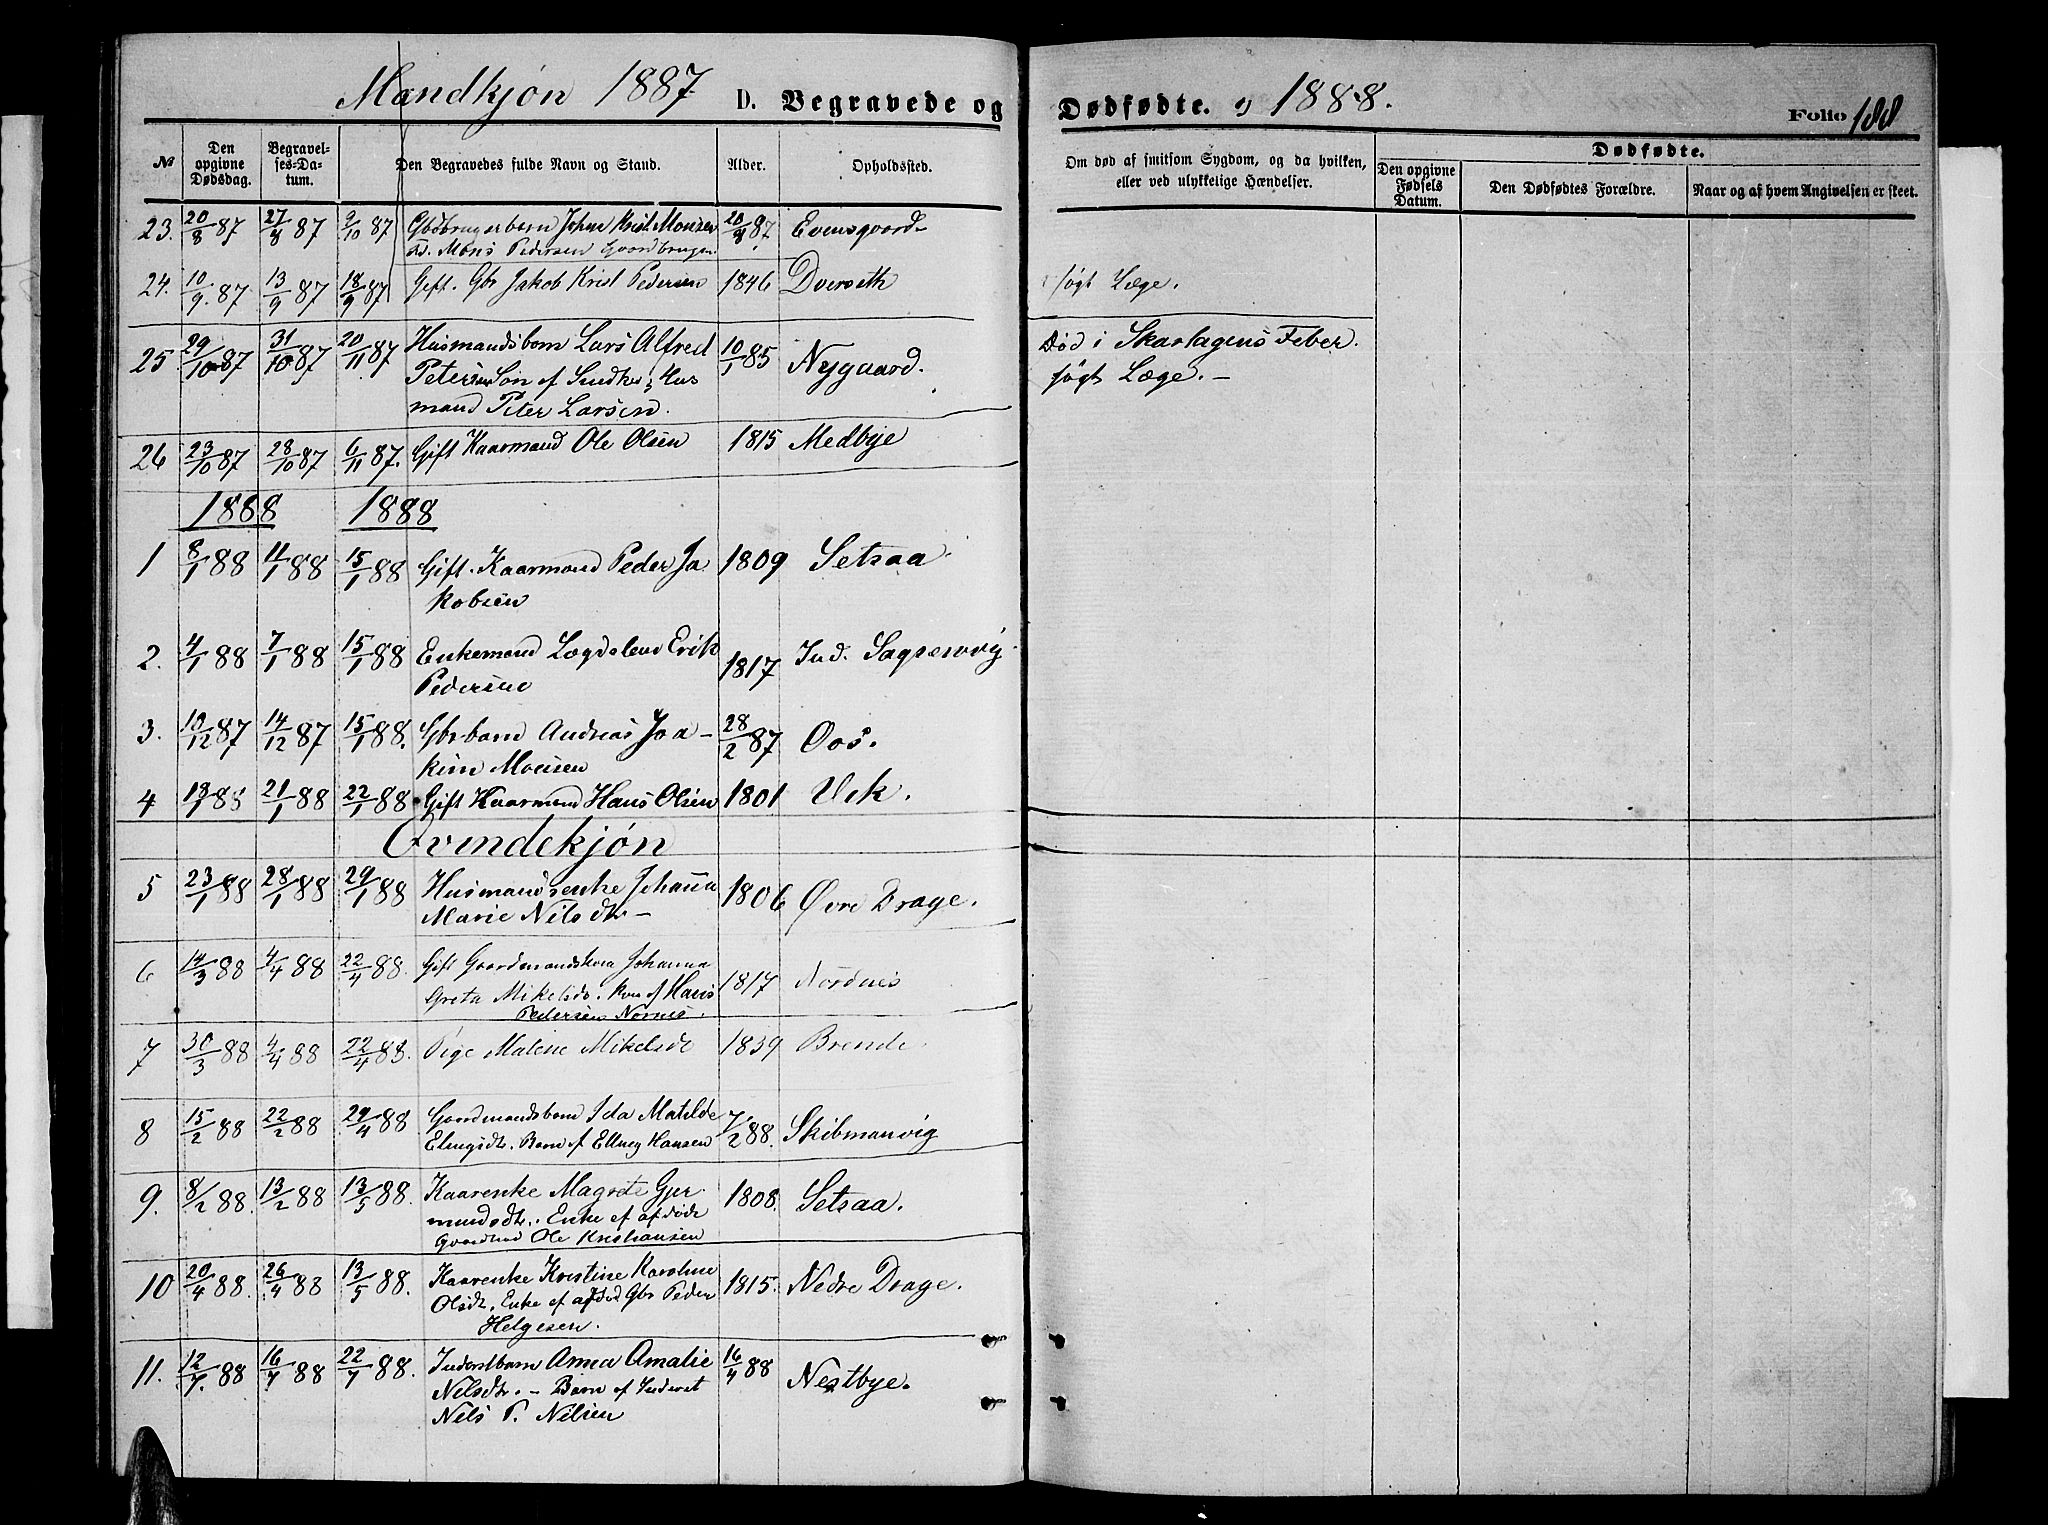 Mandkjøn 1887 D. Begravede og Dødfødte. 1888.
Folio 188
No
Den opgivne Dødsdag.
Begravelses-Datum.
Den Begravedes fulde Navn og Stand.
Alder.
Opholdssted.
Om død af smitsom Sygdom, og da hvilken,
eller ved ulykkelige Hændelser.
Dødfødte.
Den opgivne Fødsels Datum.
Den Dødfødtes Forældre.
Naar og af hvem Angivelsen er skeet.
23. 20/8 87 27/8 87 9/10 87 Gbdbrugerbarn Johan Krist. Monsen 20/8 87 Evensgaard
Mons Pedersen Gaardbruger
24. 10/9 87 13/9 87 18/9 87 Gift. Gbr Jakob Krist Pedersen 1846 søgt Læge.
25 29/10 87 31/10 87 20/11 87 Husmandsbarn Lars Alfred 10/1 85 Nygaard. Død i Skarlagens Feber.
Petersen Søn af Hus søgt Læge. –
mand Peter Larsen.
26 23/10 87 28/10 87 6/11 87. Gift Kaarmand Ole Olsen 1815 Medbye
1888 1888
1 8/1 88 11/1 88 15/1 88 Gift. Kaarmand Peder Ja 1809 Setsaa
kobsen
2. 4/1 88 7/1 88 15/1 88 Enkemand Lægdslem Erik 1817 Ind.
Pedersen
3. 10/12 87 14/12 87 15/1 88. Gbrbarn Andreas Joa- 28/2 87 Oos.
kim Moeisen
4 18/1 88 21/1 88 22/1 88 Gift Kaarmand Hans Olsen 1801 Vik.
Qvindekjøn
5 23/1 88 28/1 88 29/1 88 Husmandsenke Johanna 1806 Øvre Drage.
Marie Nilsdtr –
6 14/3 88 4/4 88 22/4 88. Gift Gaardmandskone Johanna 1817 Nordnes
Greta Mikelsdr. Kone af Hans
Pedersen Nornes.
7 30/3 88 4/4 88 22/4 88. Pige Malene Mikelsdr 1839 Brende.
8 15/2 88 22/2 88 29/4 88 Gaardmandsbarn Ida Matilde 7/2 88. Skibmanvig
Elingsdtr. Barn af Elling Hansen
9. 8/2 88. 13/2 88 13/5 88. Kaarenke Magrete Gjer 1808. Setsaa.
mundsdtr. Enke ef afdøde
Ole Kristiansen
10 20/4 88. 26/4 88 13/5 88. Kaarenke Kristine Karoline 1815. Nedre Drage.
Olsdtr. Enke ef afdød Gbr Peder
Helgesen.
11. 12/7. 88 16/7 88 22/7 88. Inderstbarn Anna Amalie 16/4 88 Nestbye.
Nelsdtr. – Barn af Inderst
Nels P. Nilsen